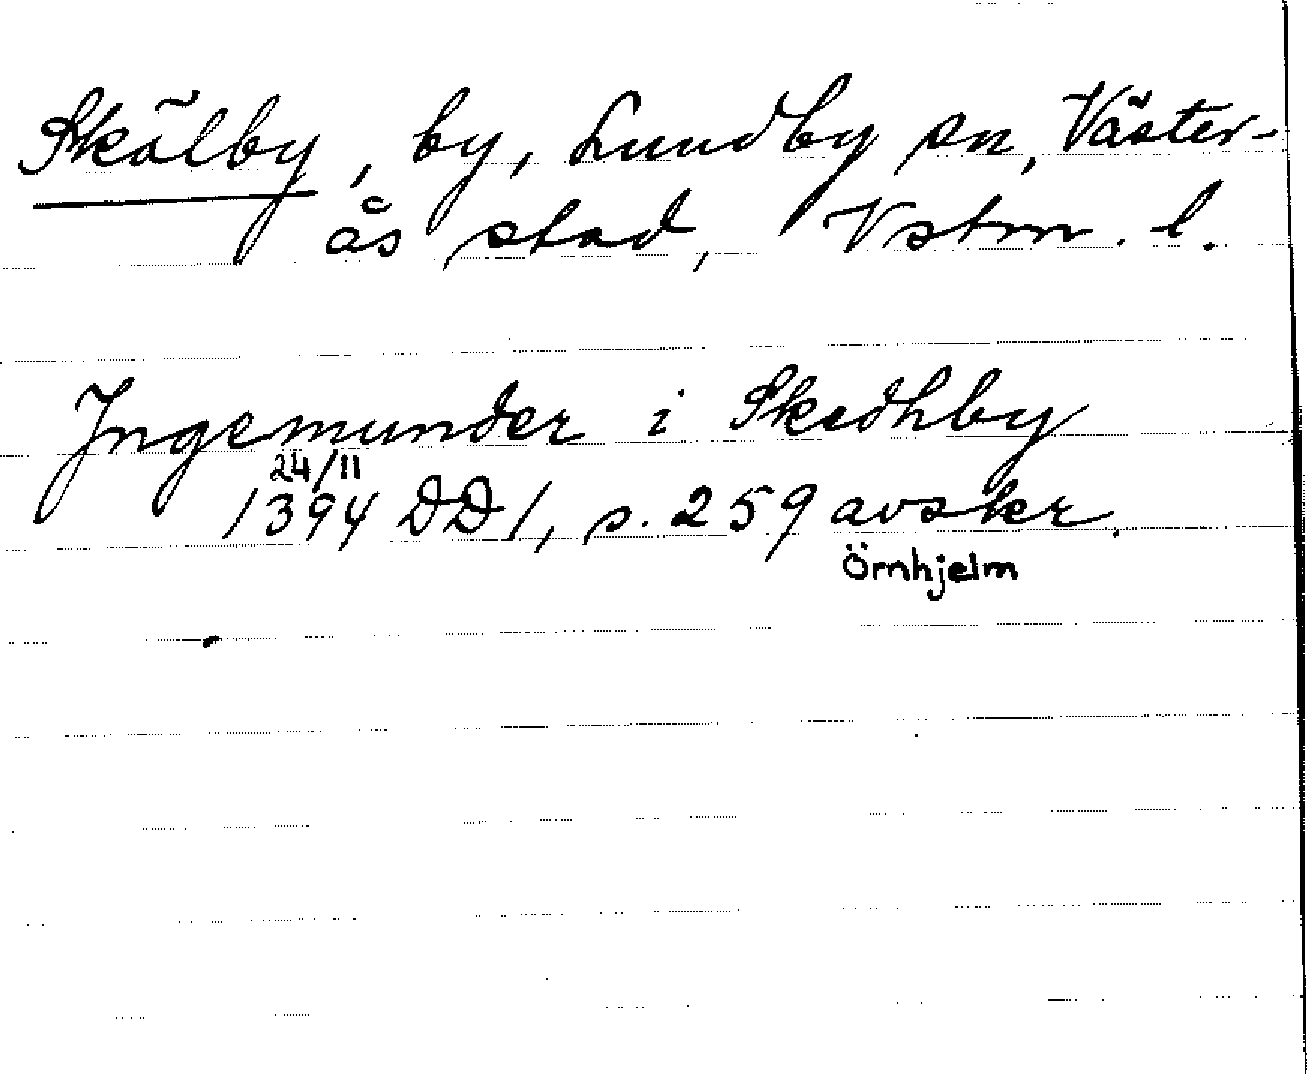 Skälby, by, Lundby sn, Väster-
ås stad, Vstm. l.
Ingemunder i Skedhby
24/11
1394 DD 1, s. 259 avskr.
Örnhjelm